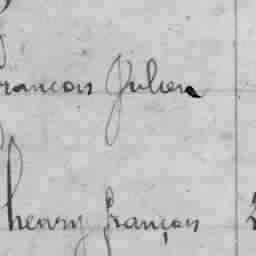 françois Julien
henry françois